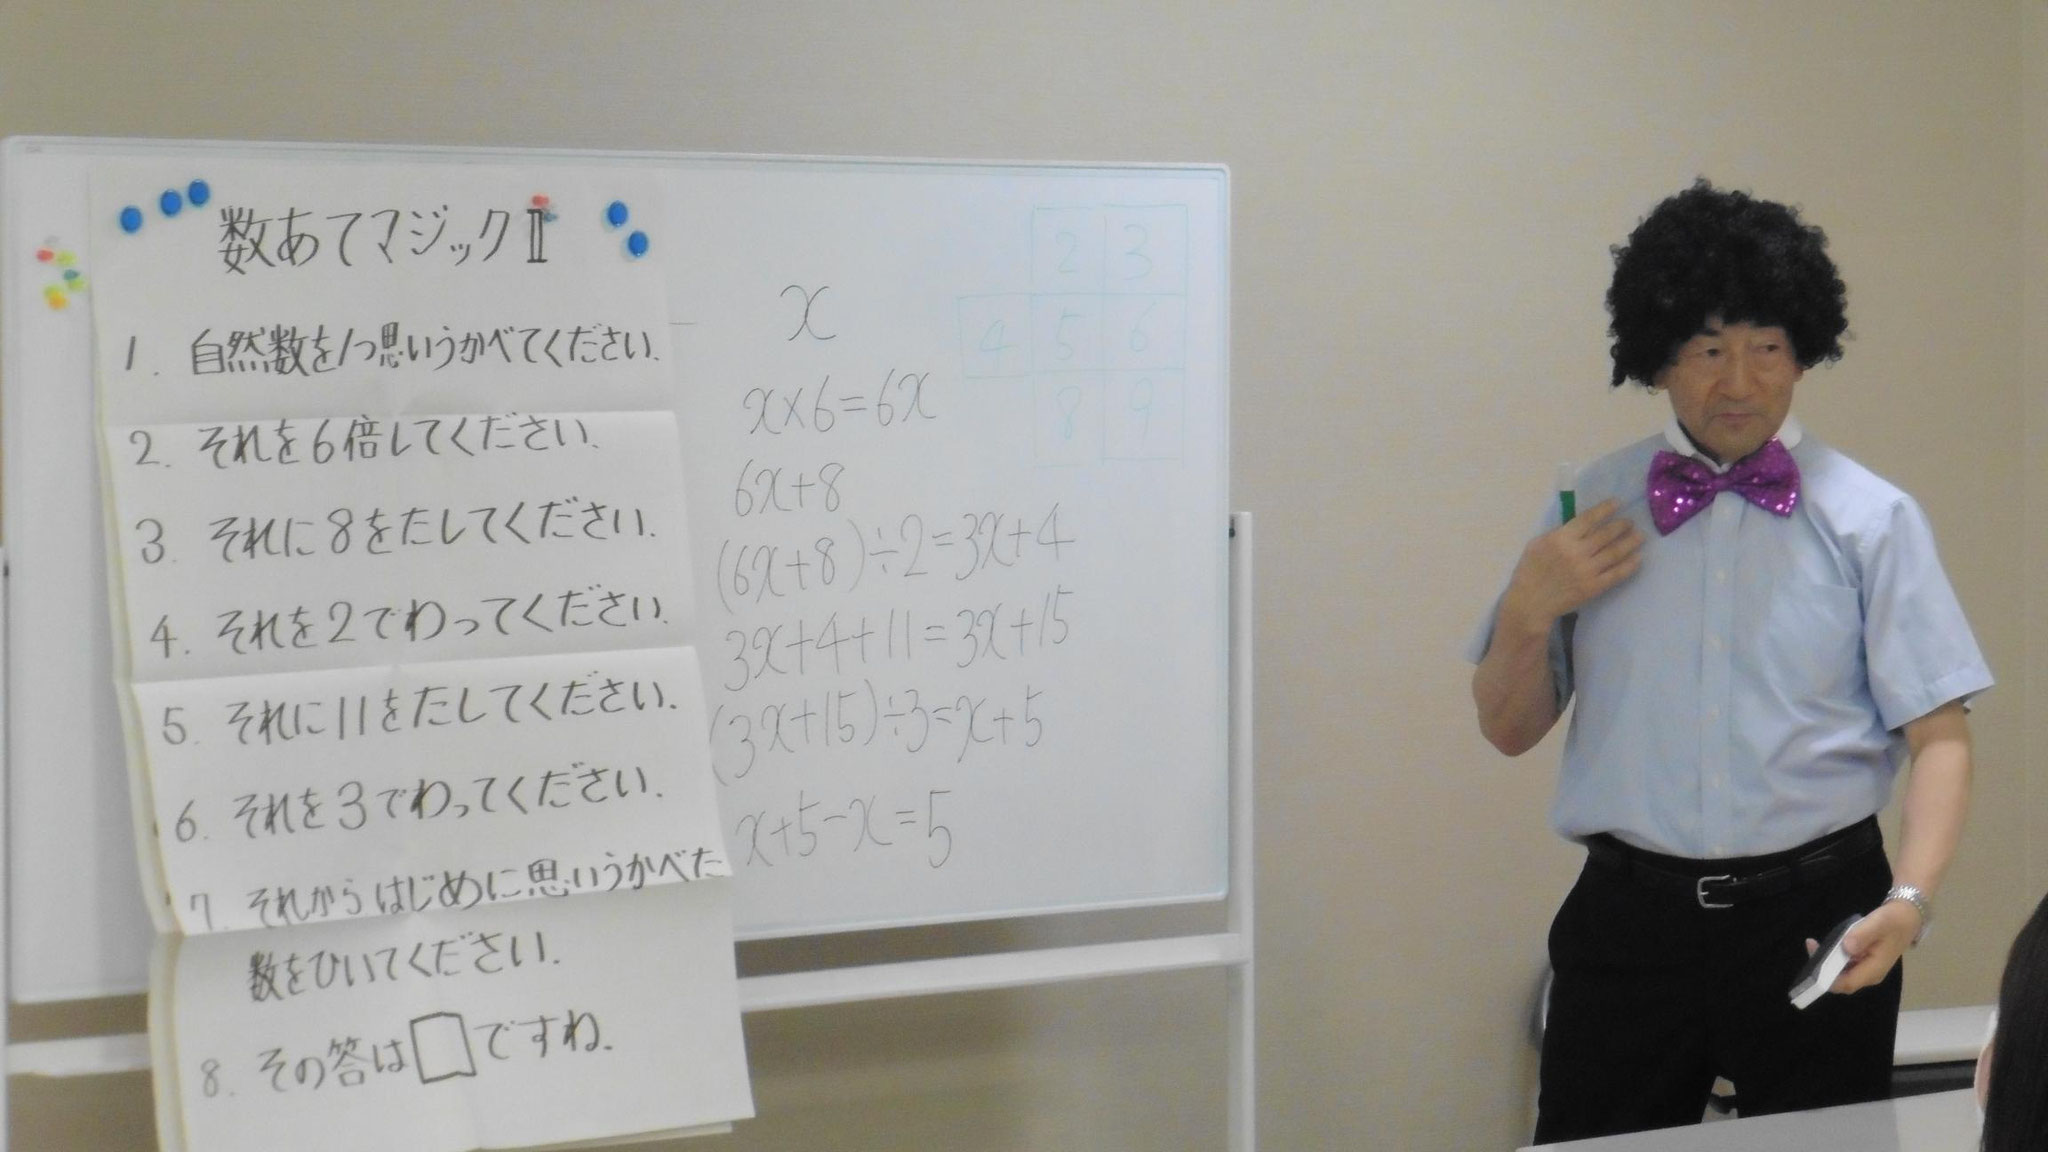 数あてマジックⅡ
1. 自然数を1つ思いうかべてください.
2. それを6倍してください.
3. それに8をたしてください.
4. それを2でわってください.
5. それに11をたしてください.
6. それを3でわってください.
7. それからはじめに思いうかべた
数をひいてください.
8. その答は□ですね.
x
x×6=6x
6x+8
(6x+8)÷2=3x+4
3x+4+11=3x+15
(3x+15)÷3=x+5
x+5-x=5
2 3
4 5 6
8 9